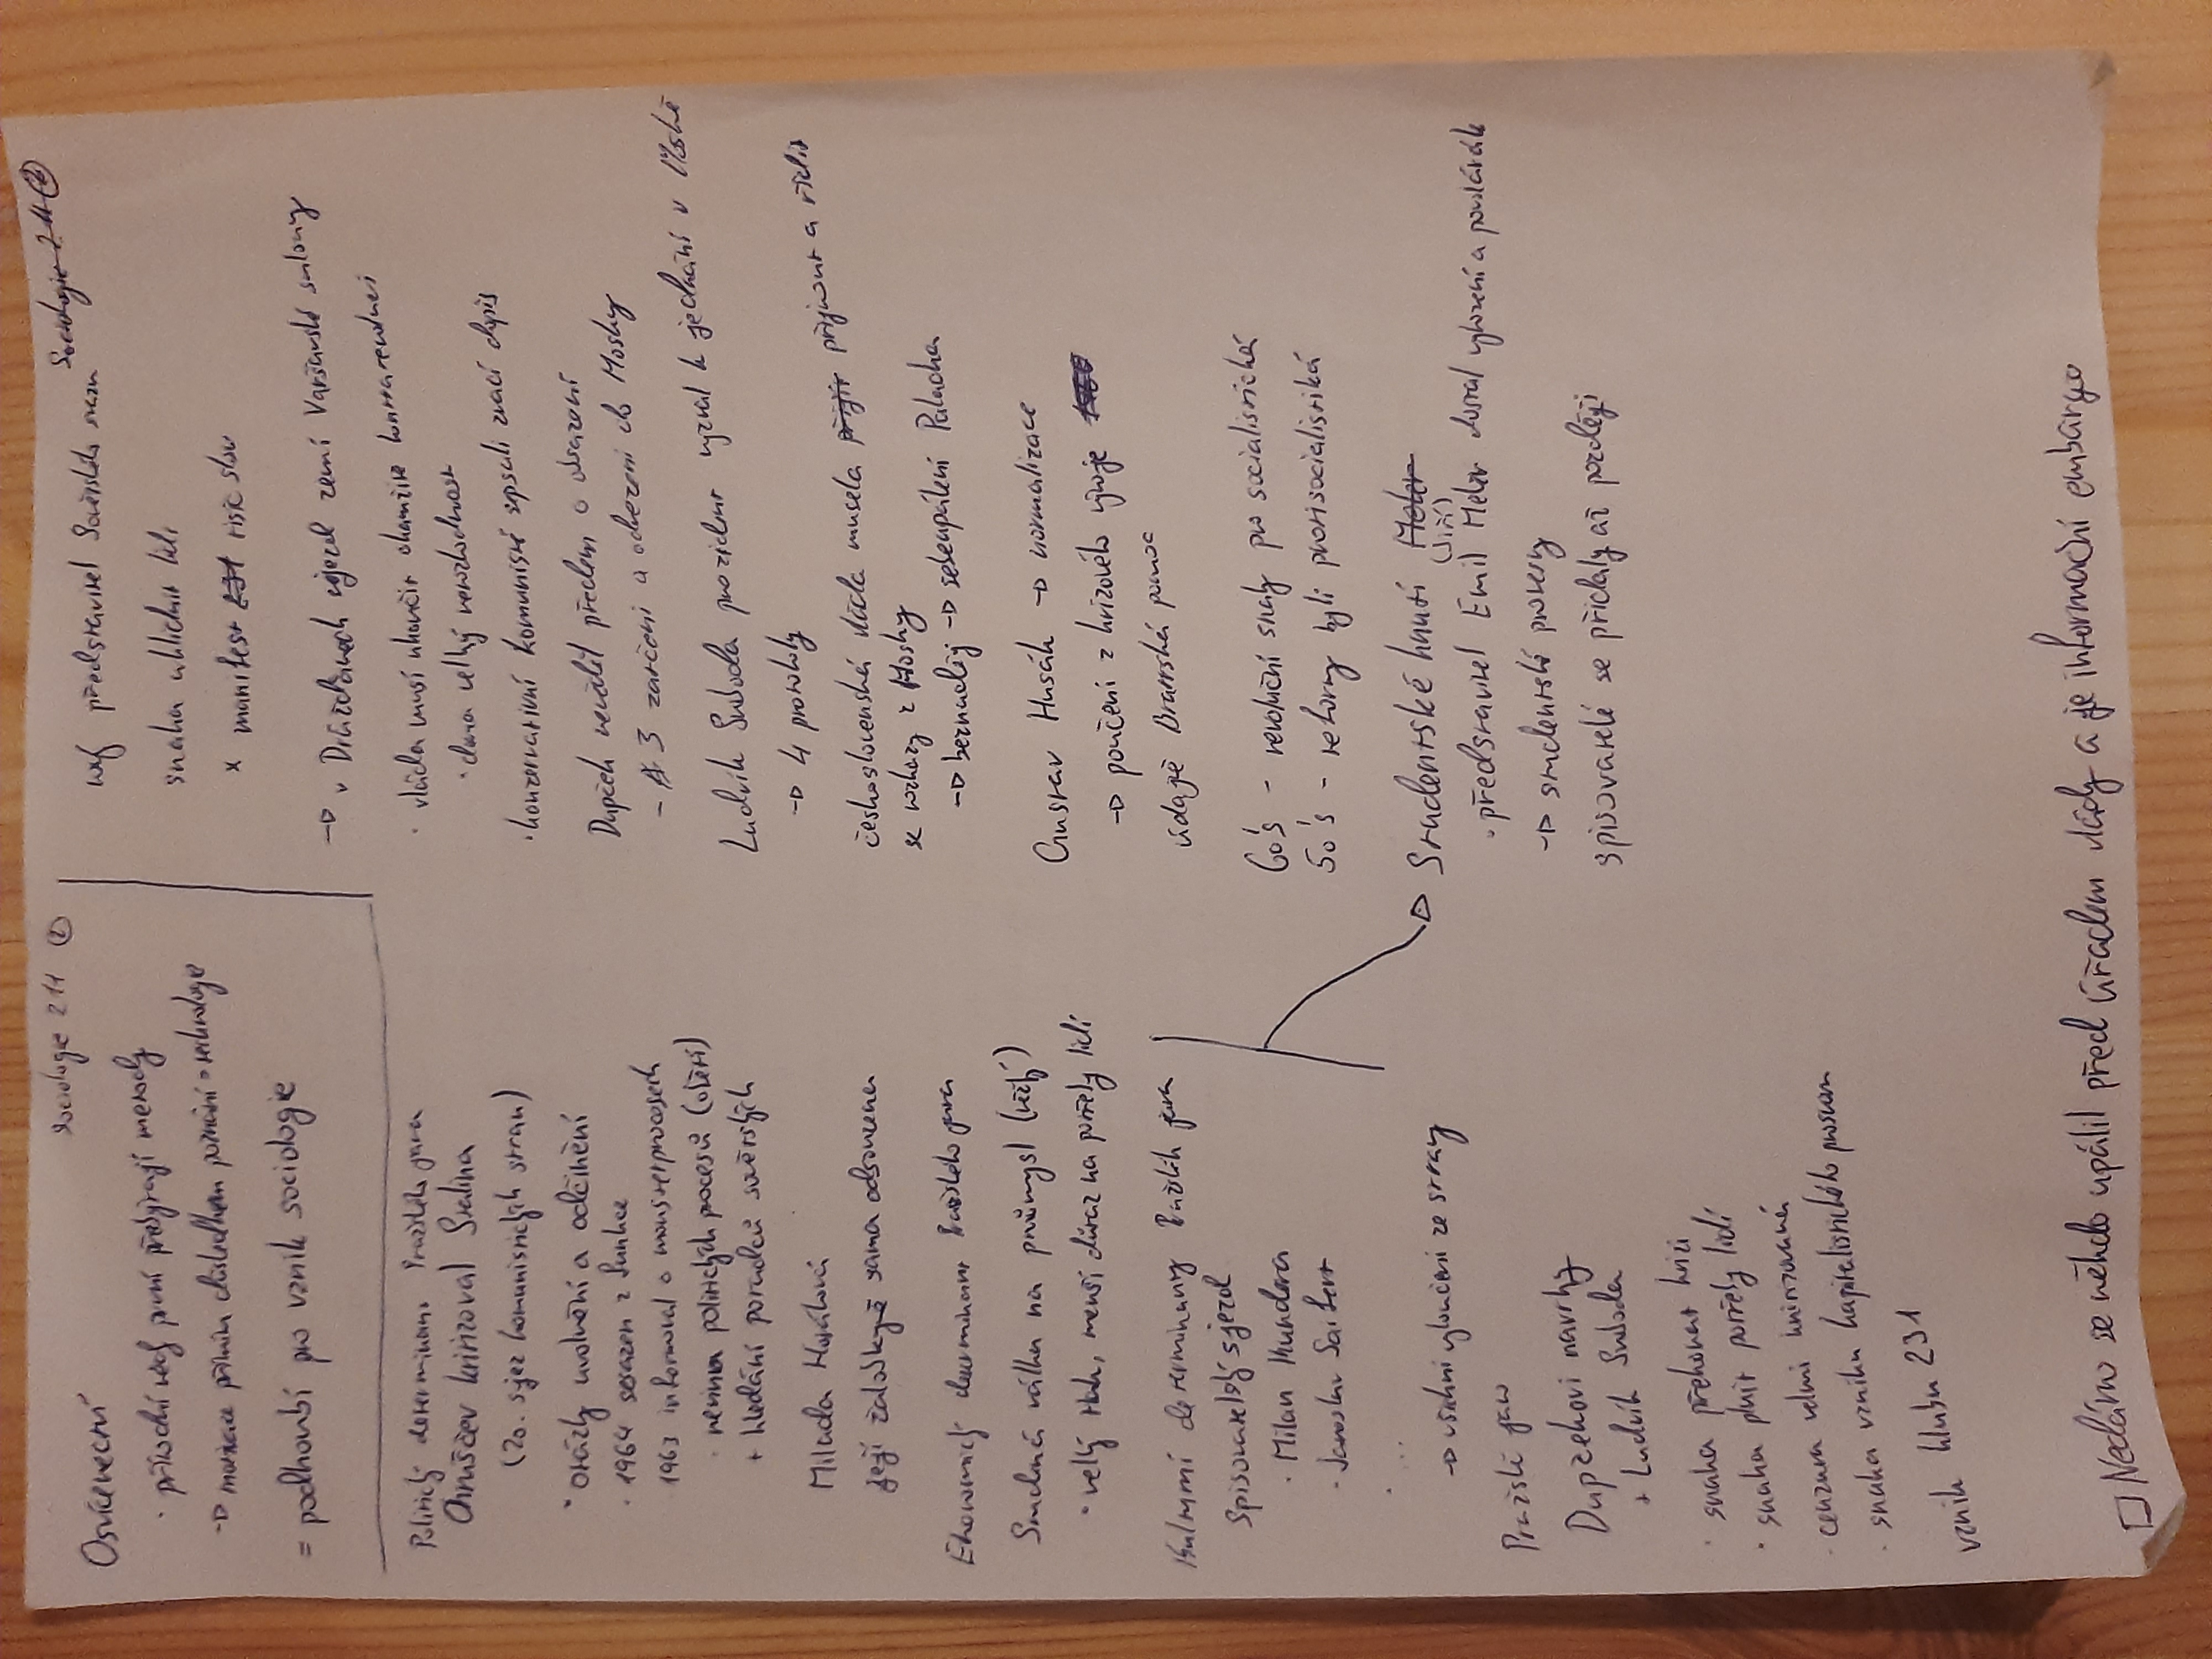 Sociologie 2H ②
Osvícenectví
· přírodní vědy první přebírají metody
→ motivace přímým důsledkem poznání → technologie
= podhoubí pro vznik sociologie
Politický determinant Pražského jara
Chruščev kritizoval Stalina
(20. sjez komunistických stran)
· otázky uvolnění a odčinění
· 1964 sesazen z funkce
1963 informoval o monstrprocesech
· nevina politických procesů (obětí)
+ hledání poradců sovětských
Milada Horáková
její žalobkyně sama odsouzena
Ekonomický determinant Pražského jara
Studená válka na průmysl (těžký)
· velký tlak, menší důraz na potřeby lidí
Kulturní determinanty Pražských jara
Spisovatelský sjezd
· Milan Kundera
· Jaroslav Saifert
· ...
→ všichni vyloučeni ze strany
Pražské jaro
Dupčekovi návrhy
+ Ludvík Svoboda
· snaha překonat krizi
· snaha plnit potřeby lidí
· cenzura velmi limitována
· snaha vzniku kapitalistického prostoru
vznik klubu 231
Sociologie 2H ②
než představitel Sovětského svazu
snaha uklidnit lidi
x manifest tisíc slov
→ v Drážďanech sjezd zemí Varšavské smlouvy
· vláda musí ukončit okamžitě kontrarevoluci
· dána velký nerozhodnost
· konzervativní komunisté sepsali zvací dopis
Dupček nevěděl předem o obsazení
- 3 zatčeni a odvezeni do Moskvy
Ludvík Svoboda prezident vyzval k jednání v Moskvě
→ 4 protokoly
československá vláda musela přijít přijmout a řídit
se vzkazy z Moskvy
→ beznaděj → sebeupálení Palacha
Gustav Husák → normalizace
→ poučení z krizového vývoje
údajně Bratrská pomoc
60's - revoluční snahy pro socialistické
50's - reformy byli protisocialistiká
Studentské hnutí
(Jiří)
· představitel Emil Meler dostal vyhození a poslárák
→ studentské protesty
spisovatelé se přidaly až později
☐ Nedávno se někdo upálil před úřadem vlády a je informační embargo